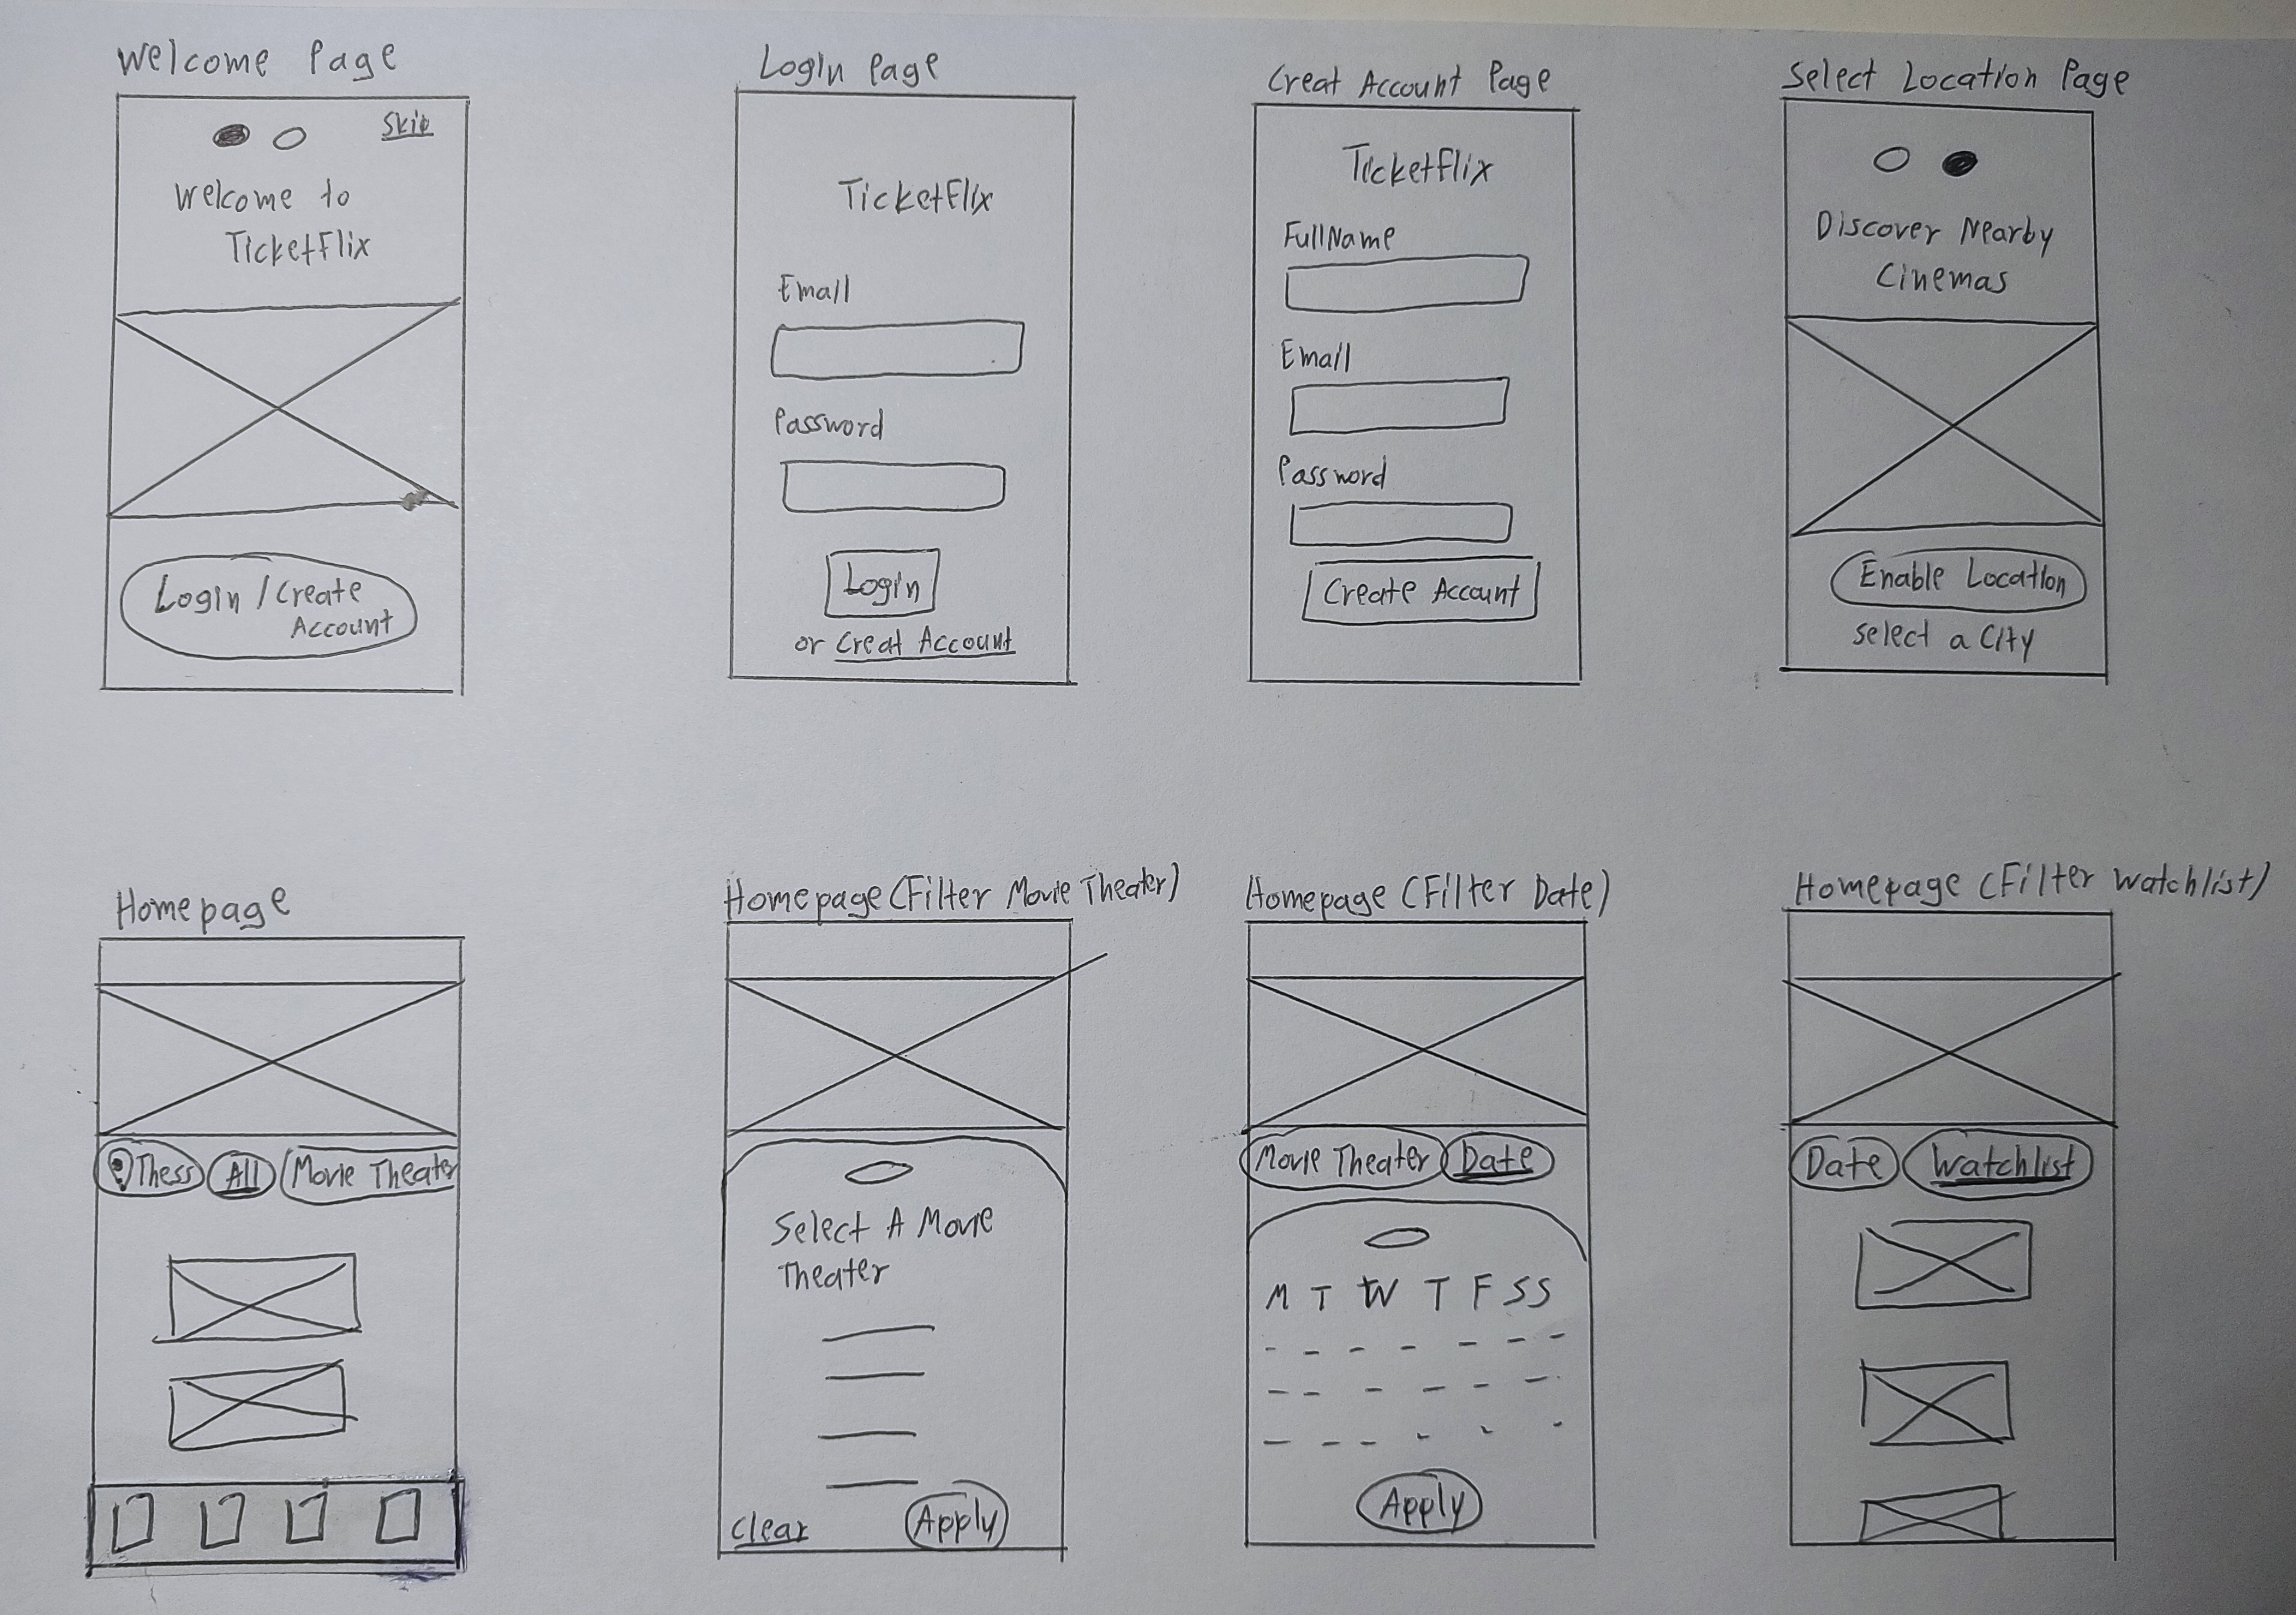 Welcome Page
Skip
Welcome to
TicketFlix
Login / Create
Account
Login Page
TicketFlix
Email
Password
Login
or Creat Account
Creat Account Page
TicketFlix
FullName
Email
Password
Create Account
Select Location Page
Discover Nearby
Cinemas
Enable Location
select a City
Homepage
Thess All Movie Theater
Homepage (Filter Movie Theater)
Select A Movie
Theater
Clear Apply
Homepage (Filter Date)
Movie Theater Date
M T W T F S S
Apply
Homepage (Filter Watchlist)
Date Watchlist